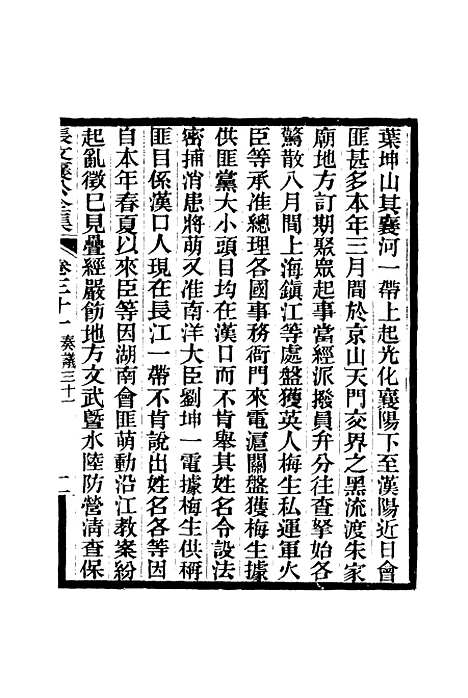 葉坤山其襄河一帶上起光化襄陽下至漢陽近日會
匪甚多本年三月間於京山天門交界之黑流渡朱家
廟地方訂期聚眾起事當經派撥員弁分往查拏始各
驚散八月間上海鎮江等處盤獲英人梅生私運軍火
臣等承准總理各國事務衙門來電滬關盤獲梅生據
供匪黨大小頭目均在漢口而不肯舉其姓名令設法
密捕消患將萌又准南洋大臣劉坤一電據梅生供稱
匪目係漢口人現在長江一帶不肯說出姓名各等因
自本年春夏以來臣等因湖南會匪萌動沿江教案紛
起亂徵已見疊經嚴飭地方文武暨水陸防營清查保
張文襄公全集 卷三十一 奏議三十一 二